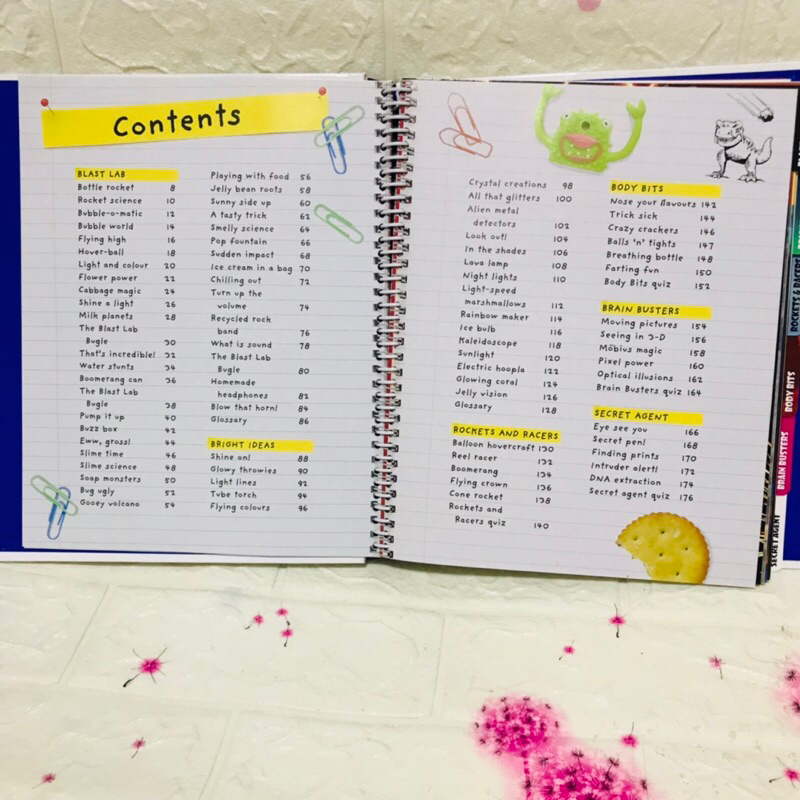 Contents
BLAST LAB
Bottle rocket 8
Rocket science 10
Bubble-o-matic 12
Bubble world 14
Flying high 16
Hover-ball 18
Light and colour 20
Flower power 22
Cabbage magic 24
Shine a light 26
Milk planets 28
The Blast Lab
Bugle 30
That's incredible! 32
Water stunts 34
Boomerang can 36
The Blast Lab
Bugle 38
Pump it up 40
Buzz box 42
Eww, gross! 44
Slime time 46
Slime science 48
Soap monsters 50
Bug ugly 52
Gooey volcano 54
Playing with food 56
Jelly bean roots 58
Sunny side up 60
A tasty trick 62
Smelly science 64
Pop fountain 66
Sudden impact 68
Ice cream in a bag 70
Chilling out 72
Turn up the
volume 74
Recycled rock
band 76
What is sound 78
The Blast Lab
Bugle 80
Homemade
headphones 82
Blow that horn! 84
Glossary 86
BRIGHT IDEAS
Shine on! 88
Glowy throwies 90
Light lines 92
Tube torch 94
Flying colours 96
Crystal creations 98
All that glitters 100
Alien metal
detectors 102
Look out! 104
In the shades 106
Lava lamp 108
Night lights 110
Light-speed
marshmallows 112
Rainbow maker 114
Ice bulb 116
Kaleidoscope 118
Sunlight 120
Electric hoopla 122
Glowing coral 124
Jelly vision 126
Glossary 128
ROCKETS AND RACERS
Balloon hovercraft 130
Reel racer 132
Boomerang 134
Flying crown 136
Cone rocket 138
Rockets and
Racers quiz 140
BODY BITS
Nose your flavours 142
Trick sick 144
Crazy crackers 146
Balls 'n' tights 147
Breathing bottle 148
Farting fun 150
Body Bits quiz 152
BRAIN BUSTERS
Moving pictures 154
Seeing in 3-D 156
Möbius magic 158
Pixel power 160
Optical illusions 162
Brain Busters quiz 164
SECRET AGENT
Eye see you 166
Secret pen! 168
Finding prints 170
Intruder alert! 172
DNA extraction 174
Secret agent quiz 176
ROCKETS & RACERS
BODY BITS
BRAIN BUSTERS
SECRET AGENT